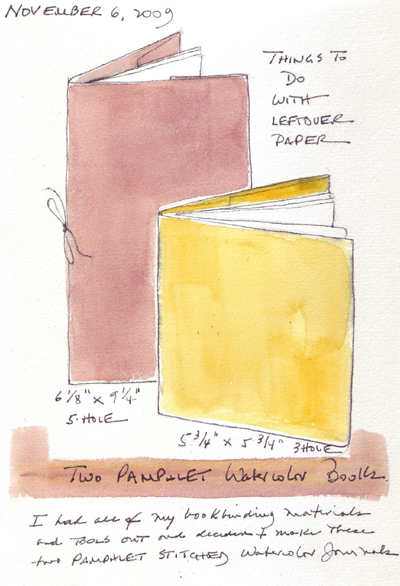 NOVEMBER 6, 2009
THINGS TO
DO
WITH
LEFTOVER
PAPER
6 1/8" x 9 1/4"
5-HOLE
5 3/4" x 5 3/4" 3 HOLE
TWO PAMPHLET Watercolor Books
I had all of my bookbinding materials
and TOOLS OUT and decided to make these
two PAMPHLET STITCHED Watercolor Journals